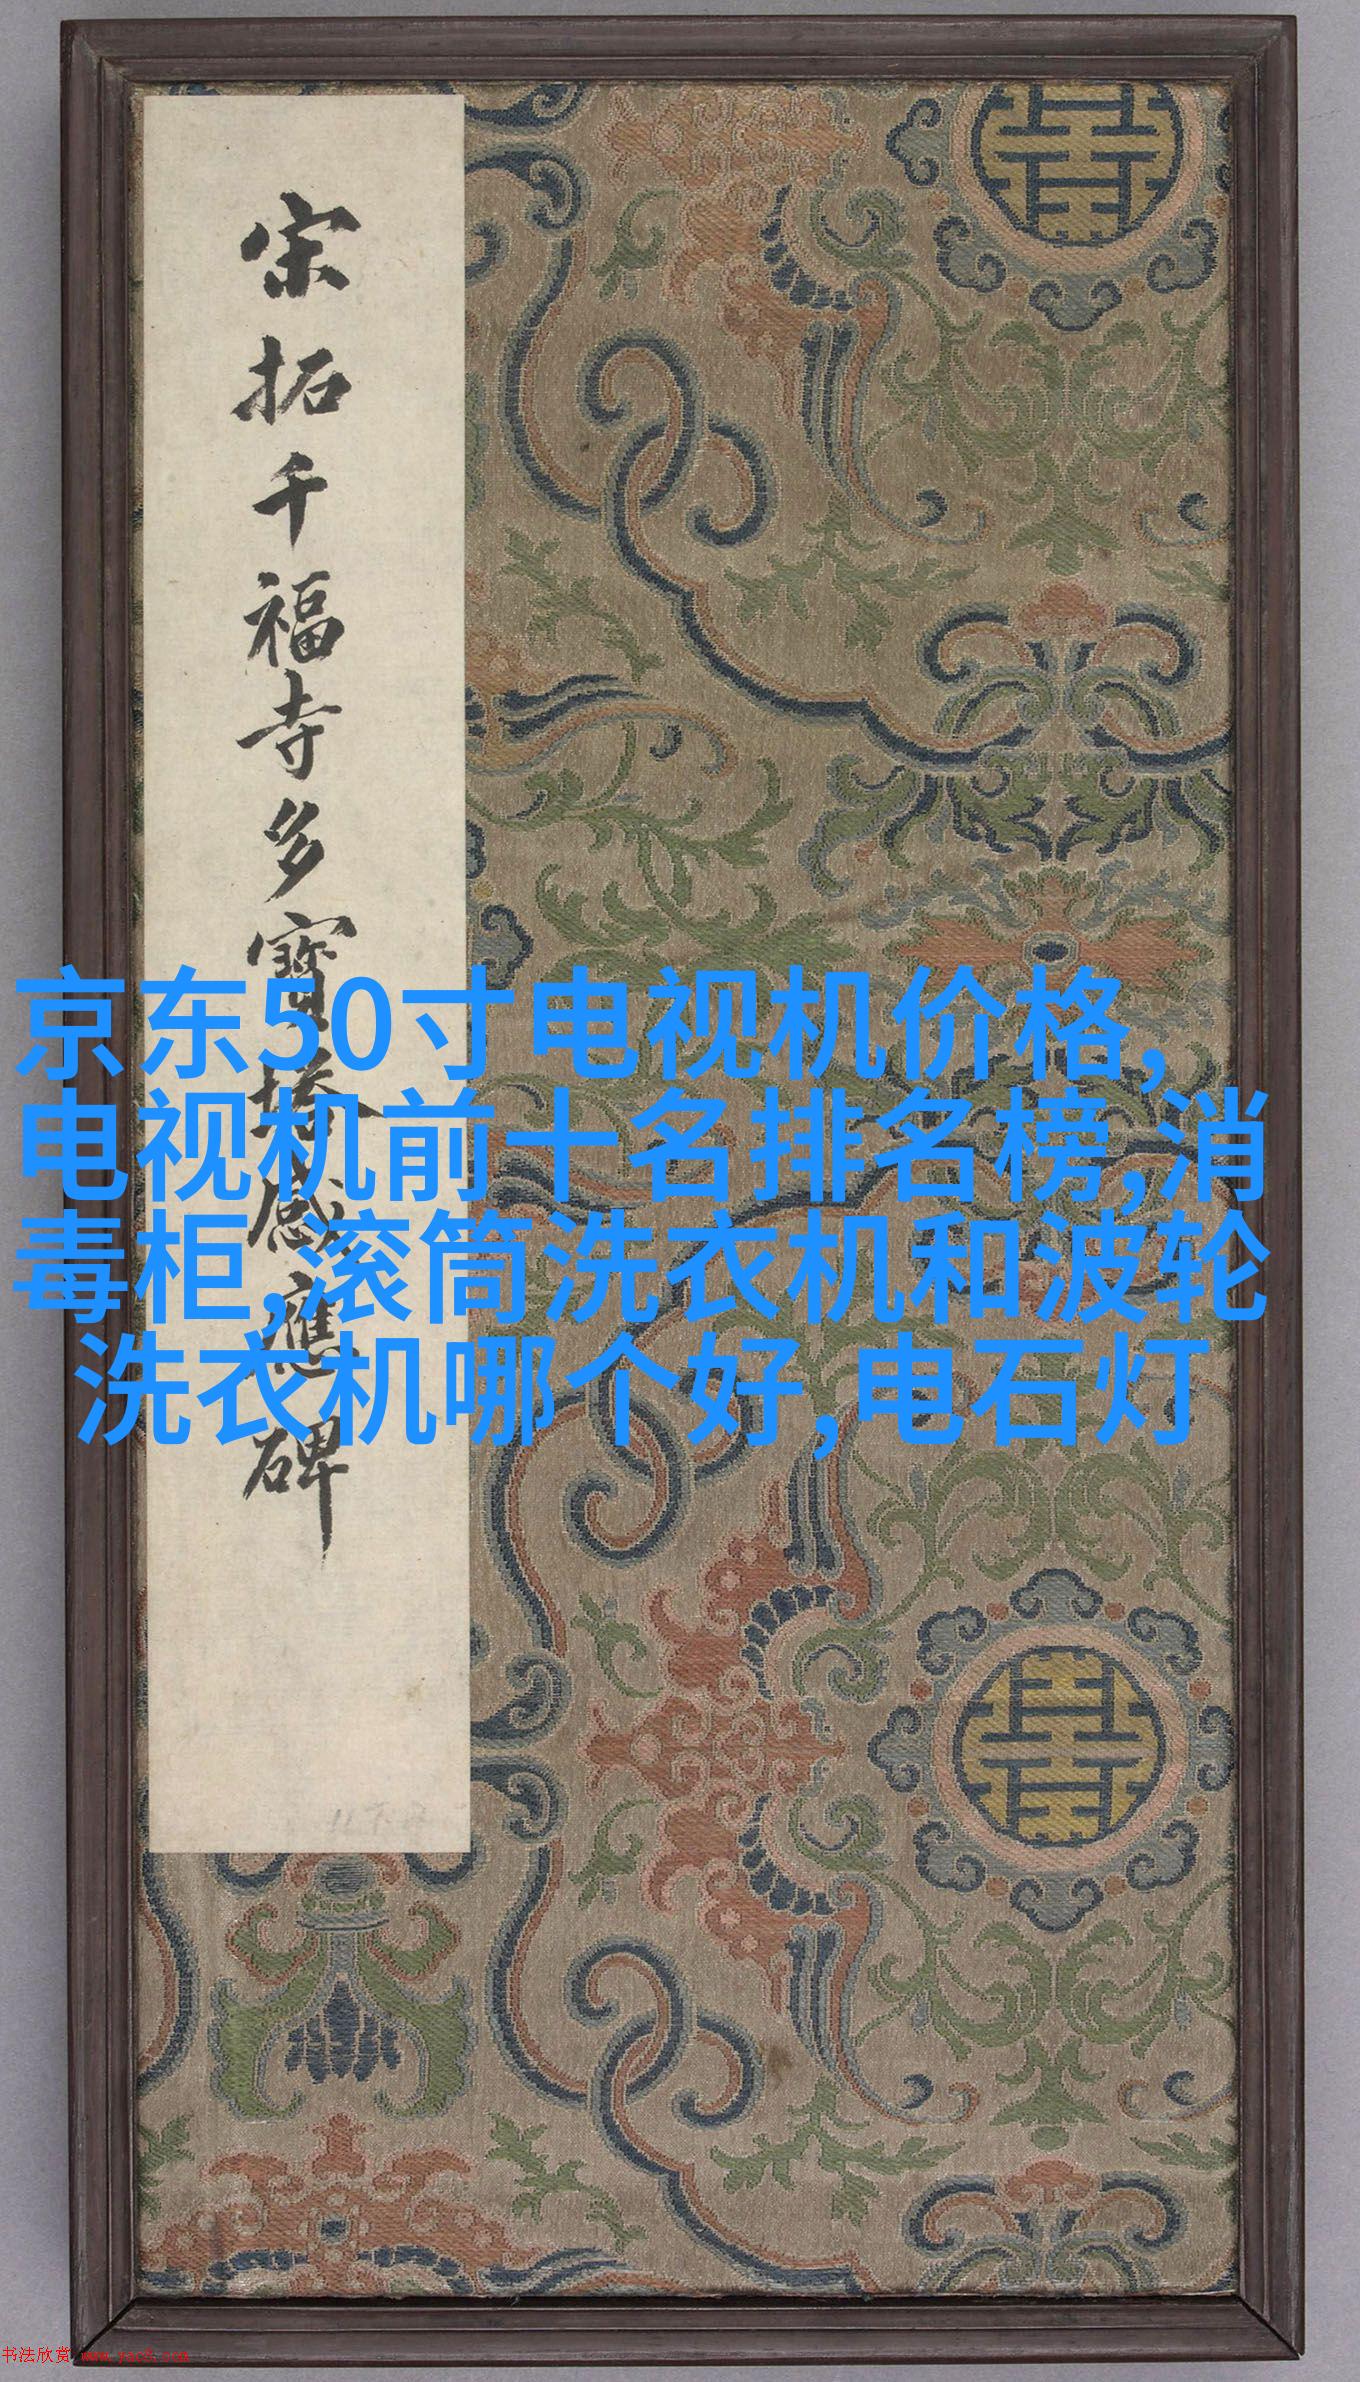 宋拓千福寺多寶塔感應碑
京东50寸电视机价格,
电视机前十名排名榜,消
毒柜,滚筒洗衣机和波轮
洗衣机哪个好,电石灯
书法欣赏 www.yac8.com